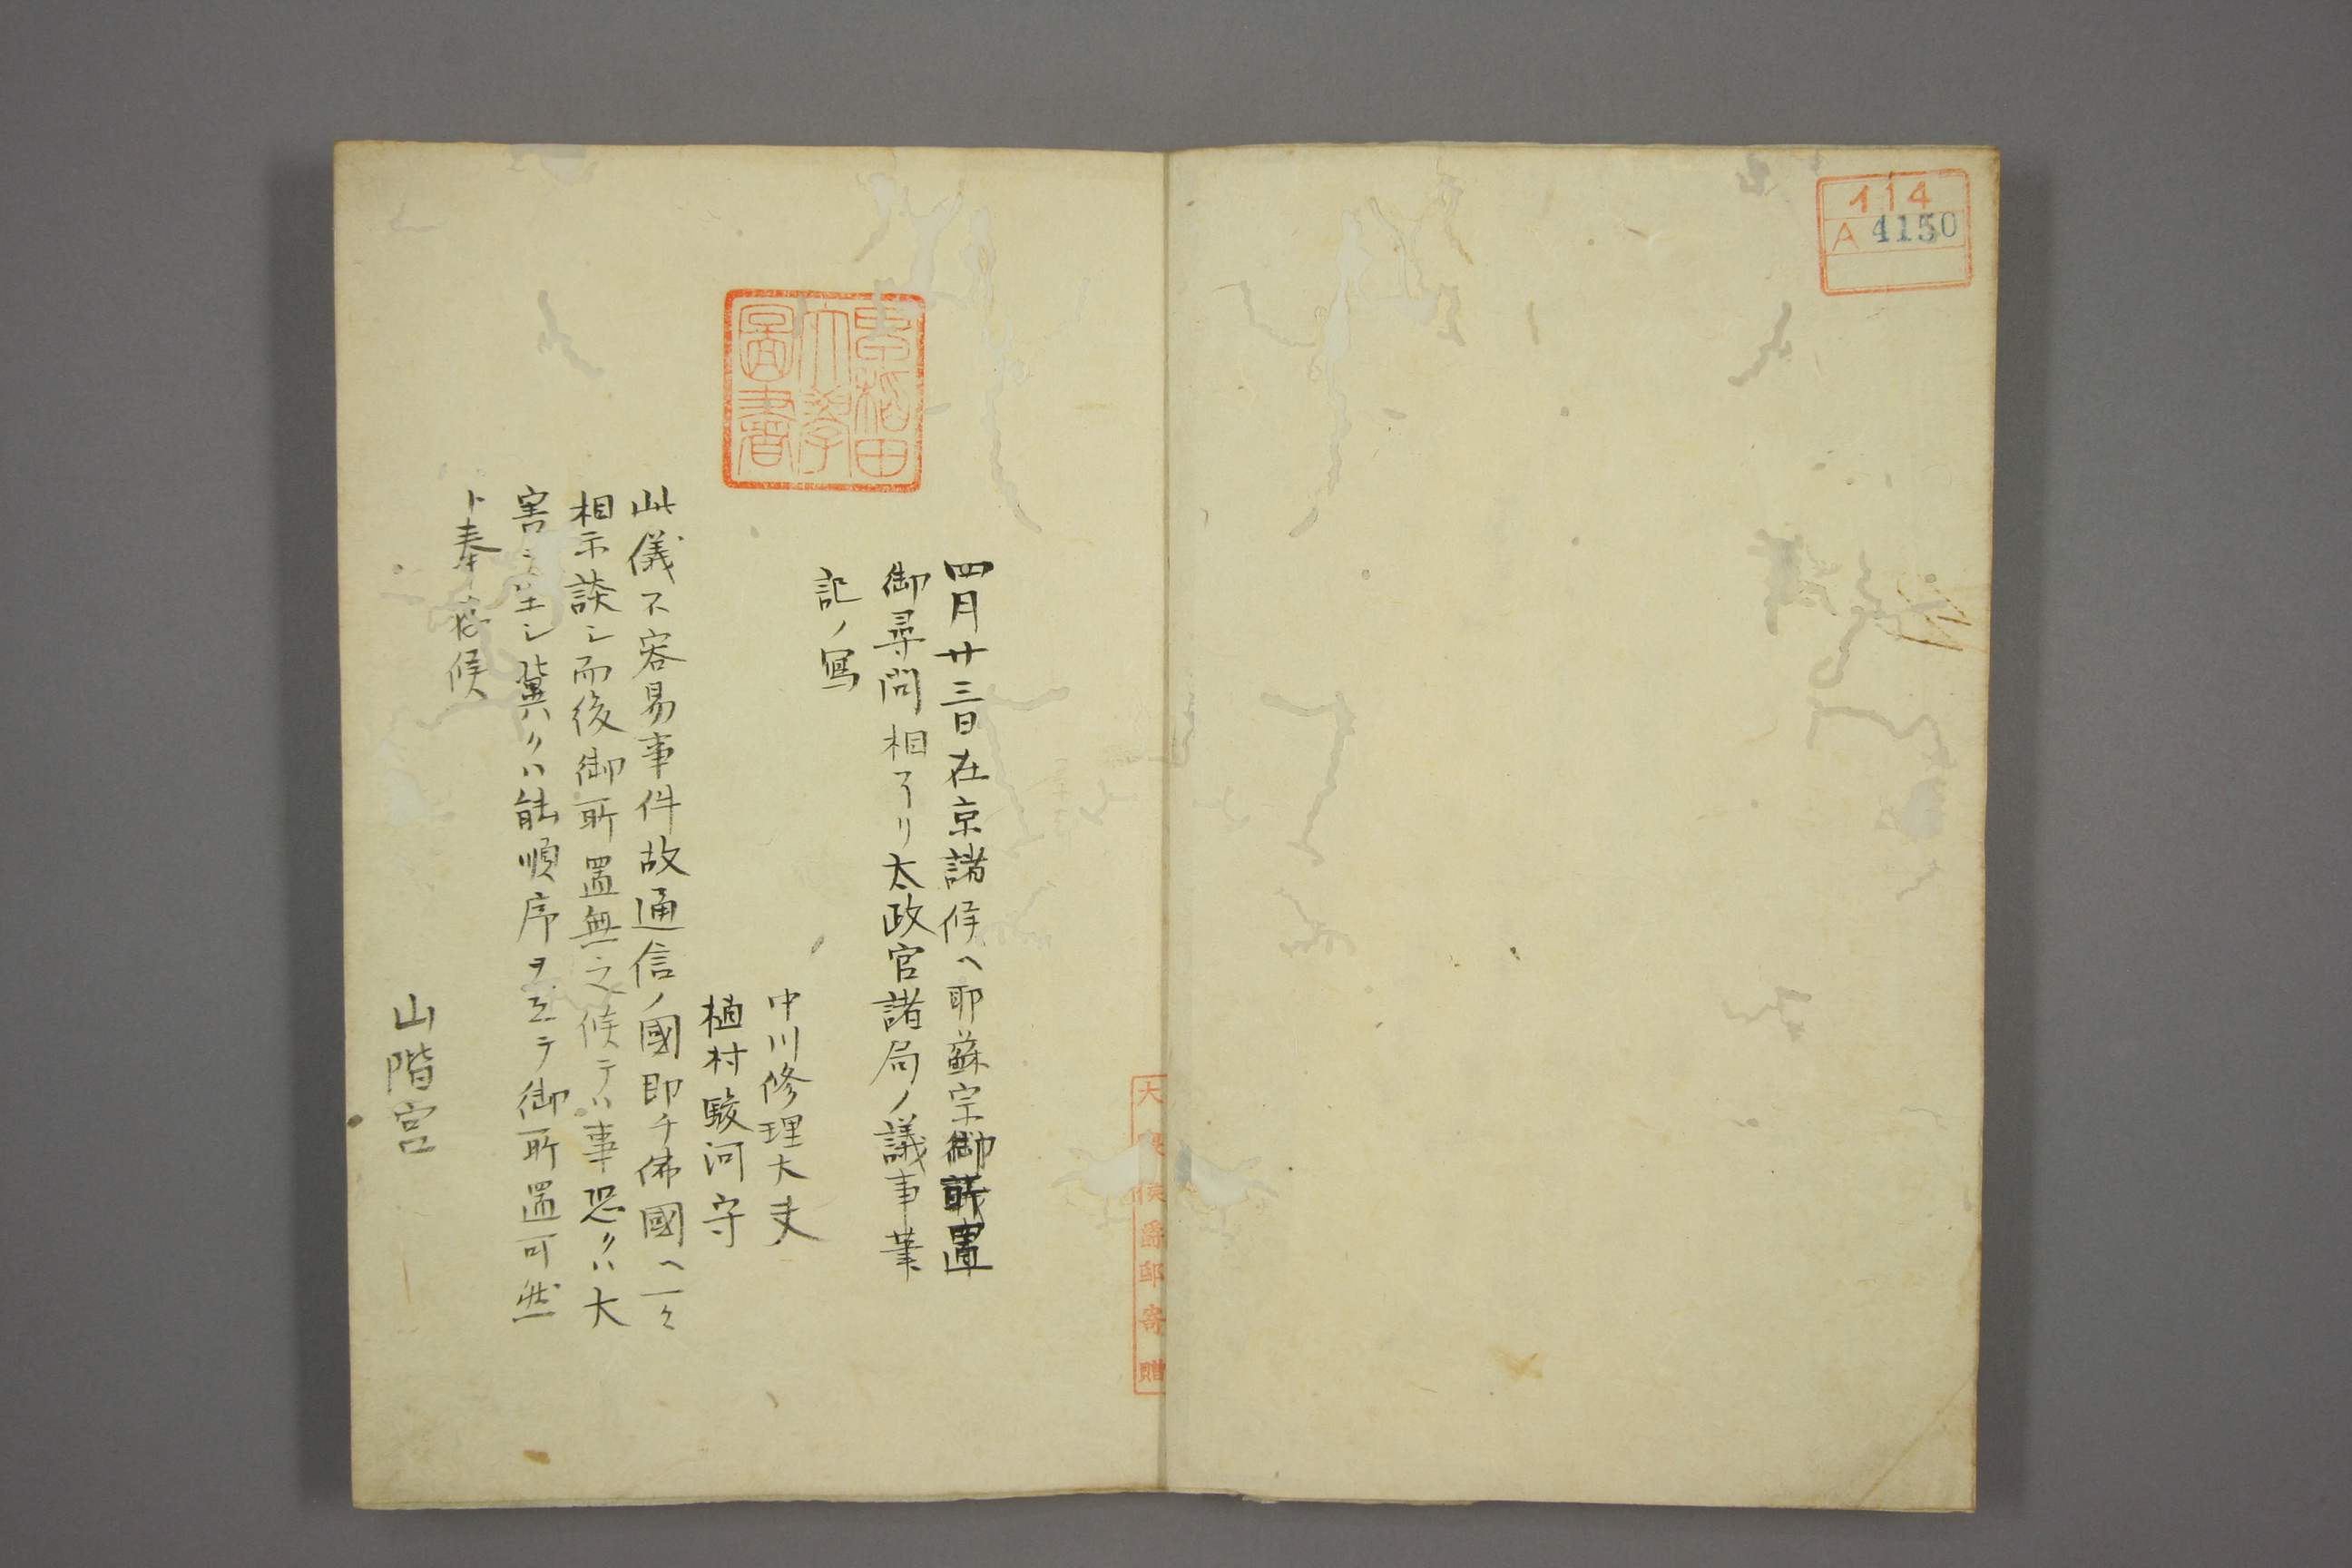 114
A 4150
大隈侯爵邸寄贈
早稲田
大學
圖書
四月廿三日在京諸侯ヘ耶蘇宗御所置
御尋問相了リ太政官諸局ノ議事筆
記ノ寫
中川修理大夫
植村駿河守
此儀不容易事件故通信ノ國即チ佛國ヘ一々
相示談シ而後御所置無之候テハ事恐クハ大
害ヲ生シ冀クハ能順序ヲ立テ御所置可然
ト奉存候
山階宮